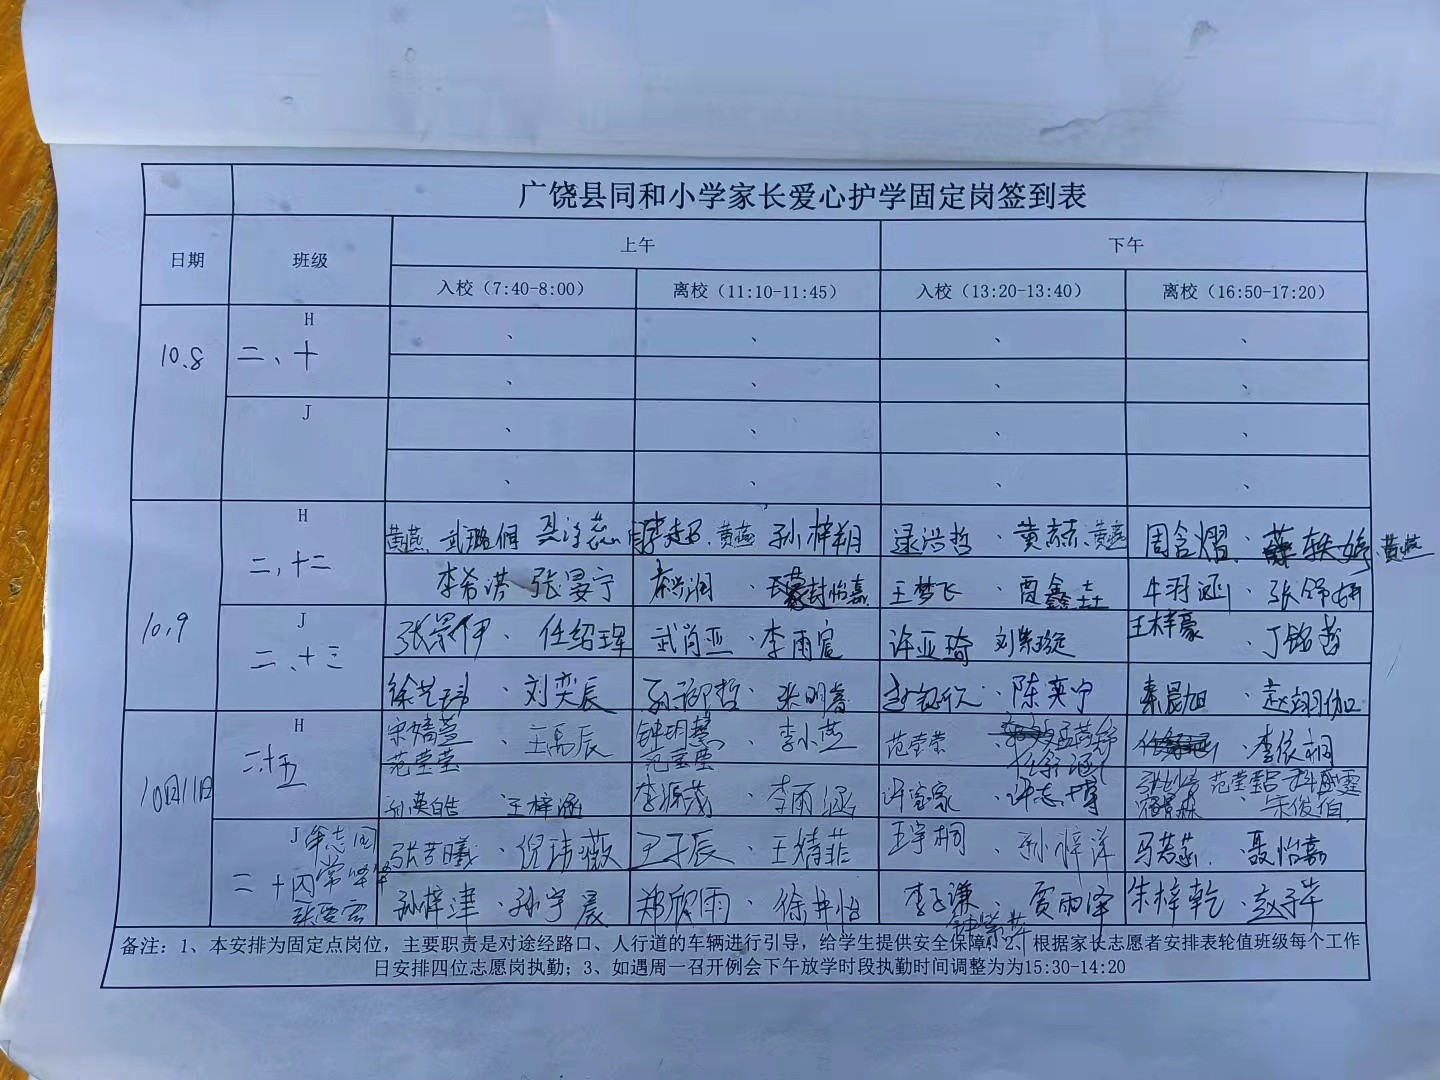 广饶县同和小学家长爱心护学固定岗签到表
日期 班级 上午 下午
入校（7:40-8:00） 离校（11:10-11:45） 入校（13:20-13:40） 离校（16:50-17:20）
10.8 二、十 H 、 、 、 、
、 、 、 、
J 、 、 、 、
、 、 、 、
10.9 二,十二 H 黄燕 武璐候 黄燕 孙梓翔 逯浩哲、黄燕 周含熠、黄燕
李希洪 张晏宁 王梦飞、贾鑫垚 牛羽涵、张
二、十三 J 任绍珲 武肖亚、李雨宸 许亚琦 刘紫璇 王梓豪、丁铭哲
徐艺玮、刘奕辰 孙柳哲、张明睿 、陈奕宁 秦晨旭、赵翊伽
10月11日 二十五 H 宋婧萱、王禹辰 钟玥慧、李小燕 范莹莹 、李依桐
范莹莹 范莹莹
孙英皓、王梓涵 李源茂、李雨涵 许家家、许志博 范莹莹 朱俊伯
二十四 J 牟志国 张芳曦、倪玮薇 王子辰、王婧菲 王宇桐、孙梓洋 马若菡、聂怡嘉
孙梓津、孙宇晨 郑欣雨、徐书怡 李子谦、贾雨泽 朱梓乾、赵子牟
备注：1、本安排为固定点岗位，主要职责是对途经路口、人行道的车辆进行引导，给学生提供安全保障；2、根据家长志愿者安排表轮值班级每个工作
日安排四位志愿岗执勤；3、如遇周一召开例会下午放学时段执勤时间调整为为15:30-14:20